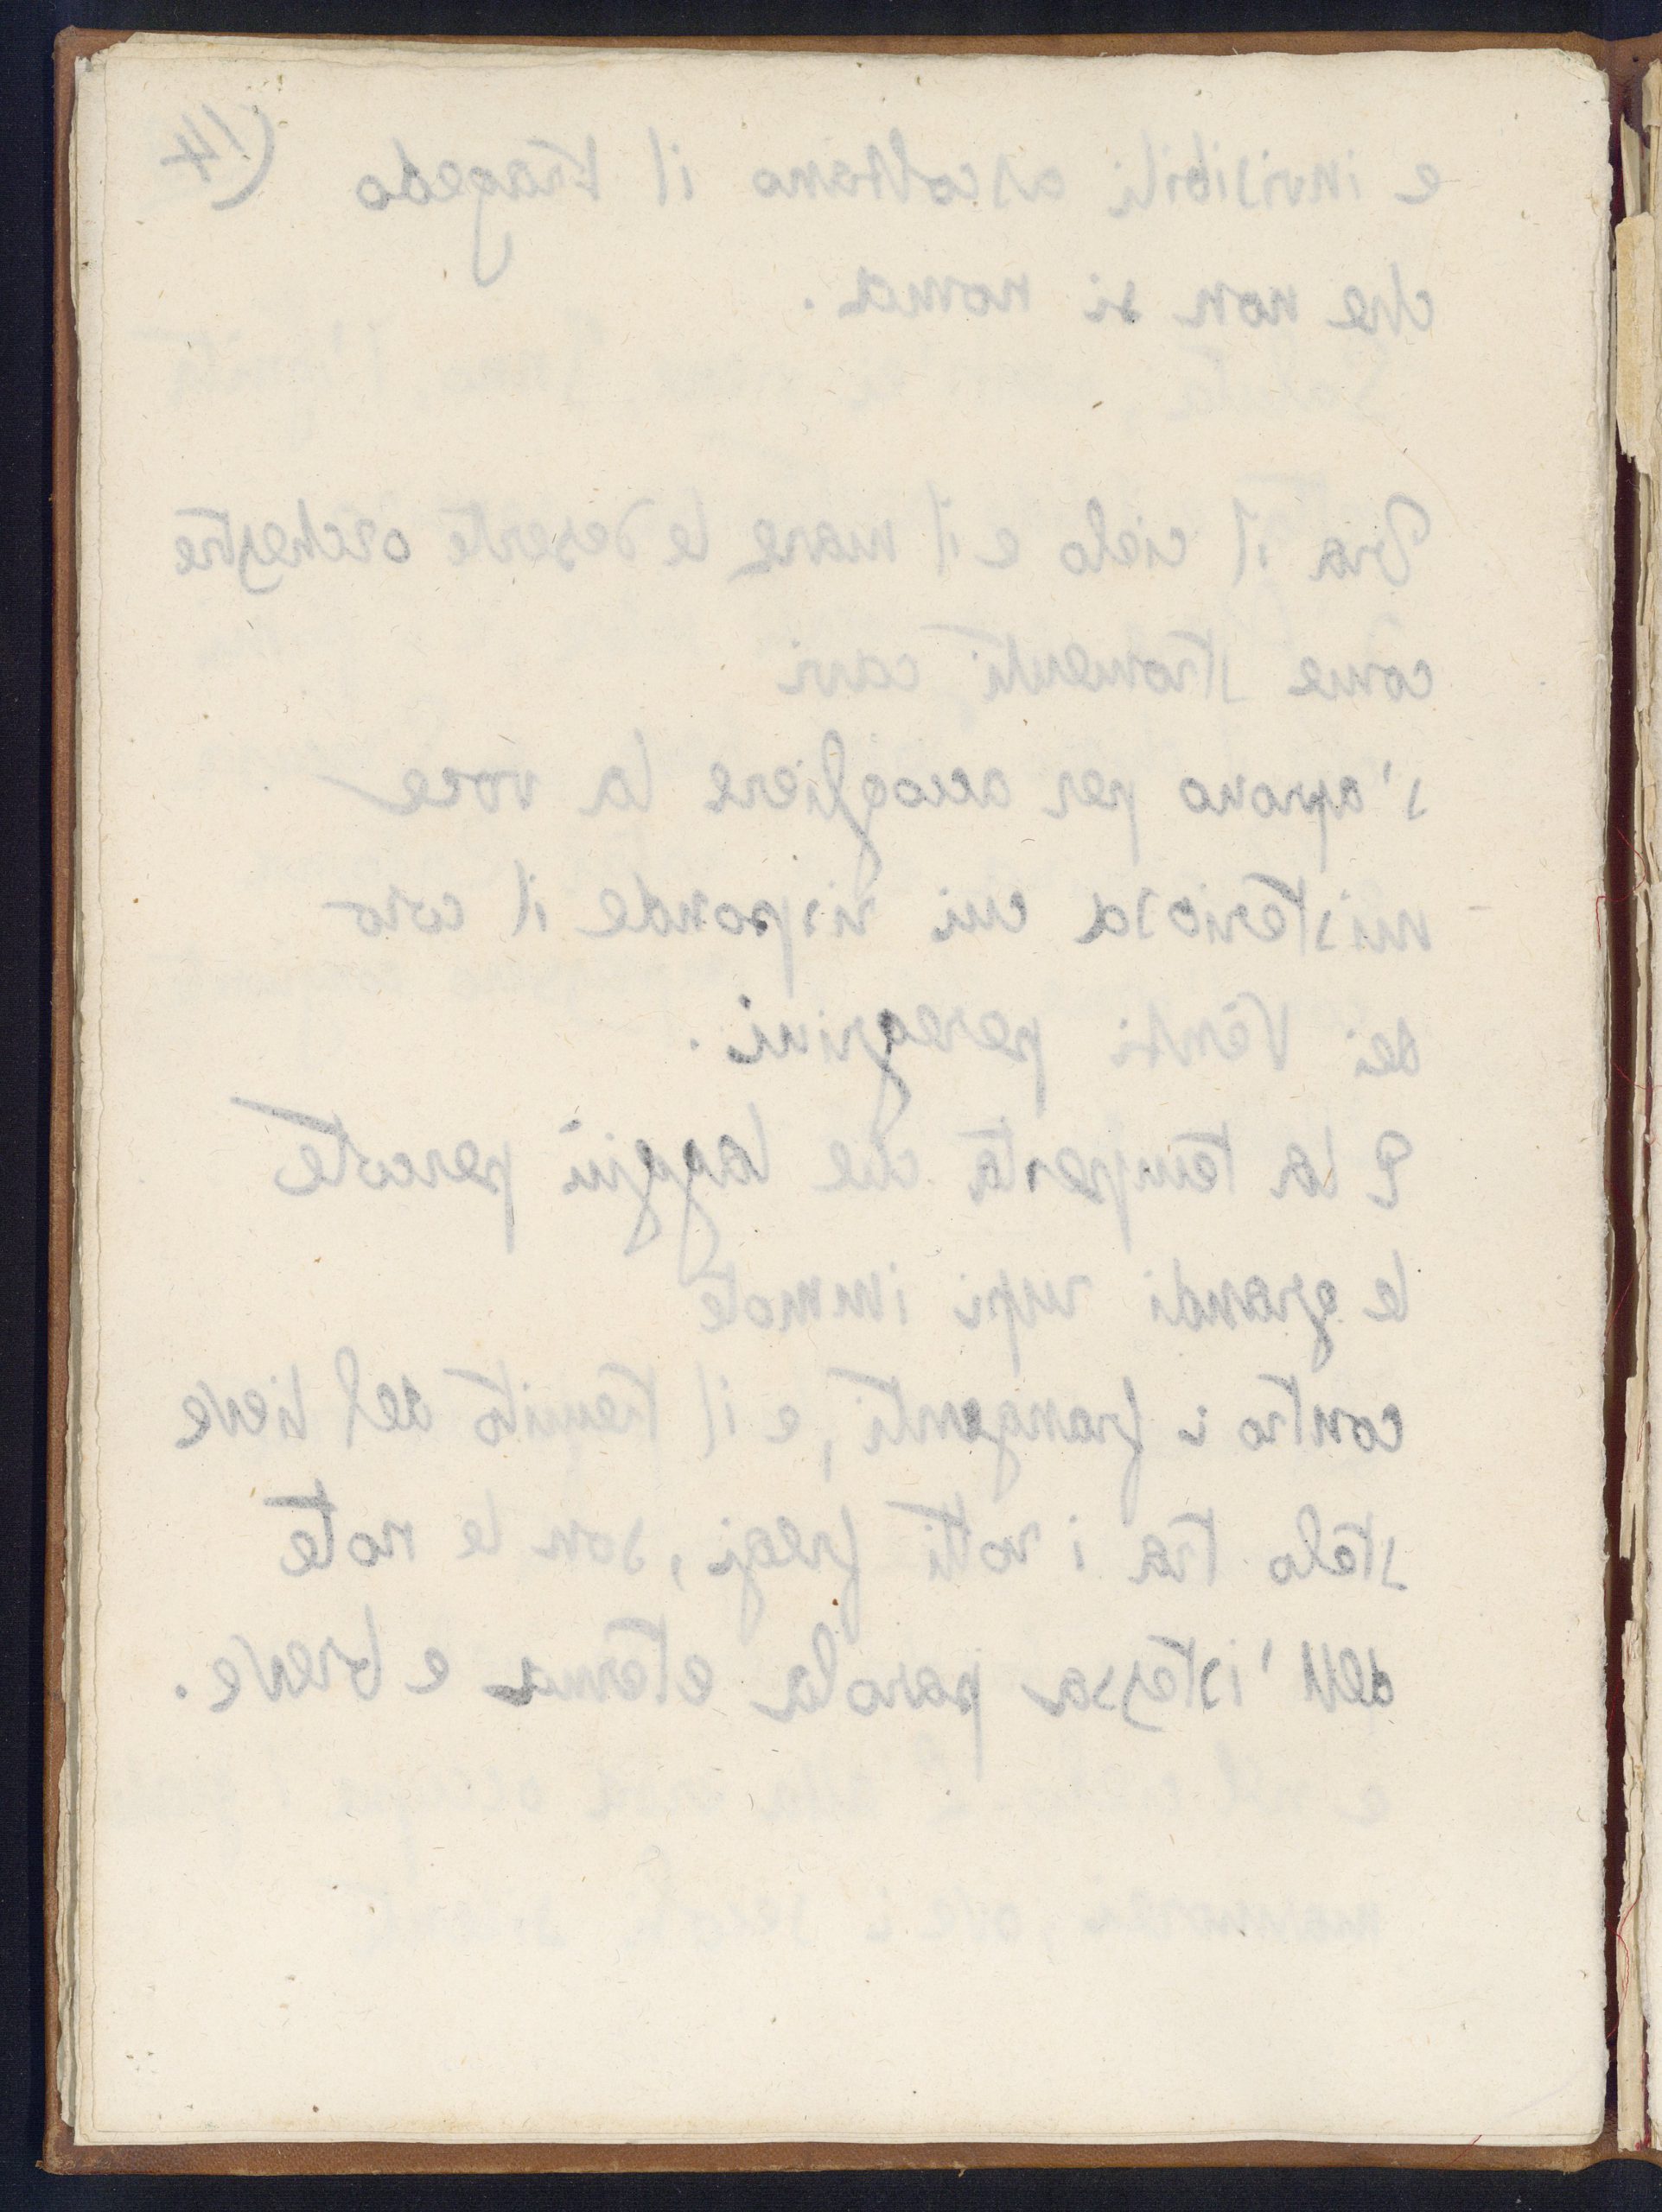 (14
e invisibili ascoltano il tragedo
che non si noma.
Tra il cielo e il mare le deserte orchestre
come stromenti cavi
s'aprono per accogliere la voce
misteriosa cui risponde il coro
dei Vènti peregrini.
E la tempesta che laggiù percote
le grandi rupi immote
contro i frangenti, e il tremito del lieve
stelo tra i rotti fregi, son le note
dell'istessa parola eterna e breve.